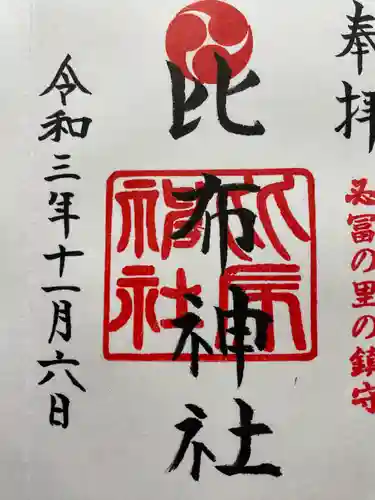 奉拝
冨の里の鎮守
比布神社
比布神社
令和三年十一月六日